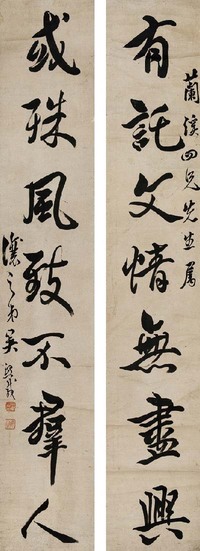 有託文情無盡興
蘭溪四兄先生屬
或殊風致不群人
讓之弟吳熙載